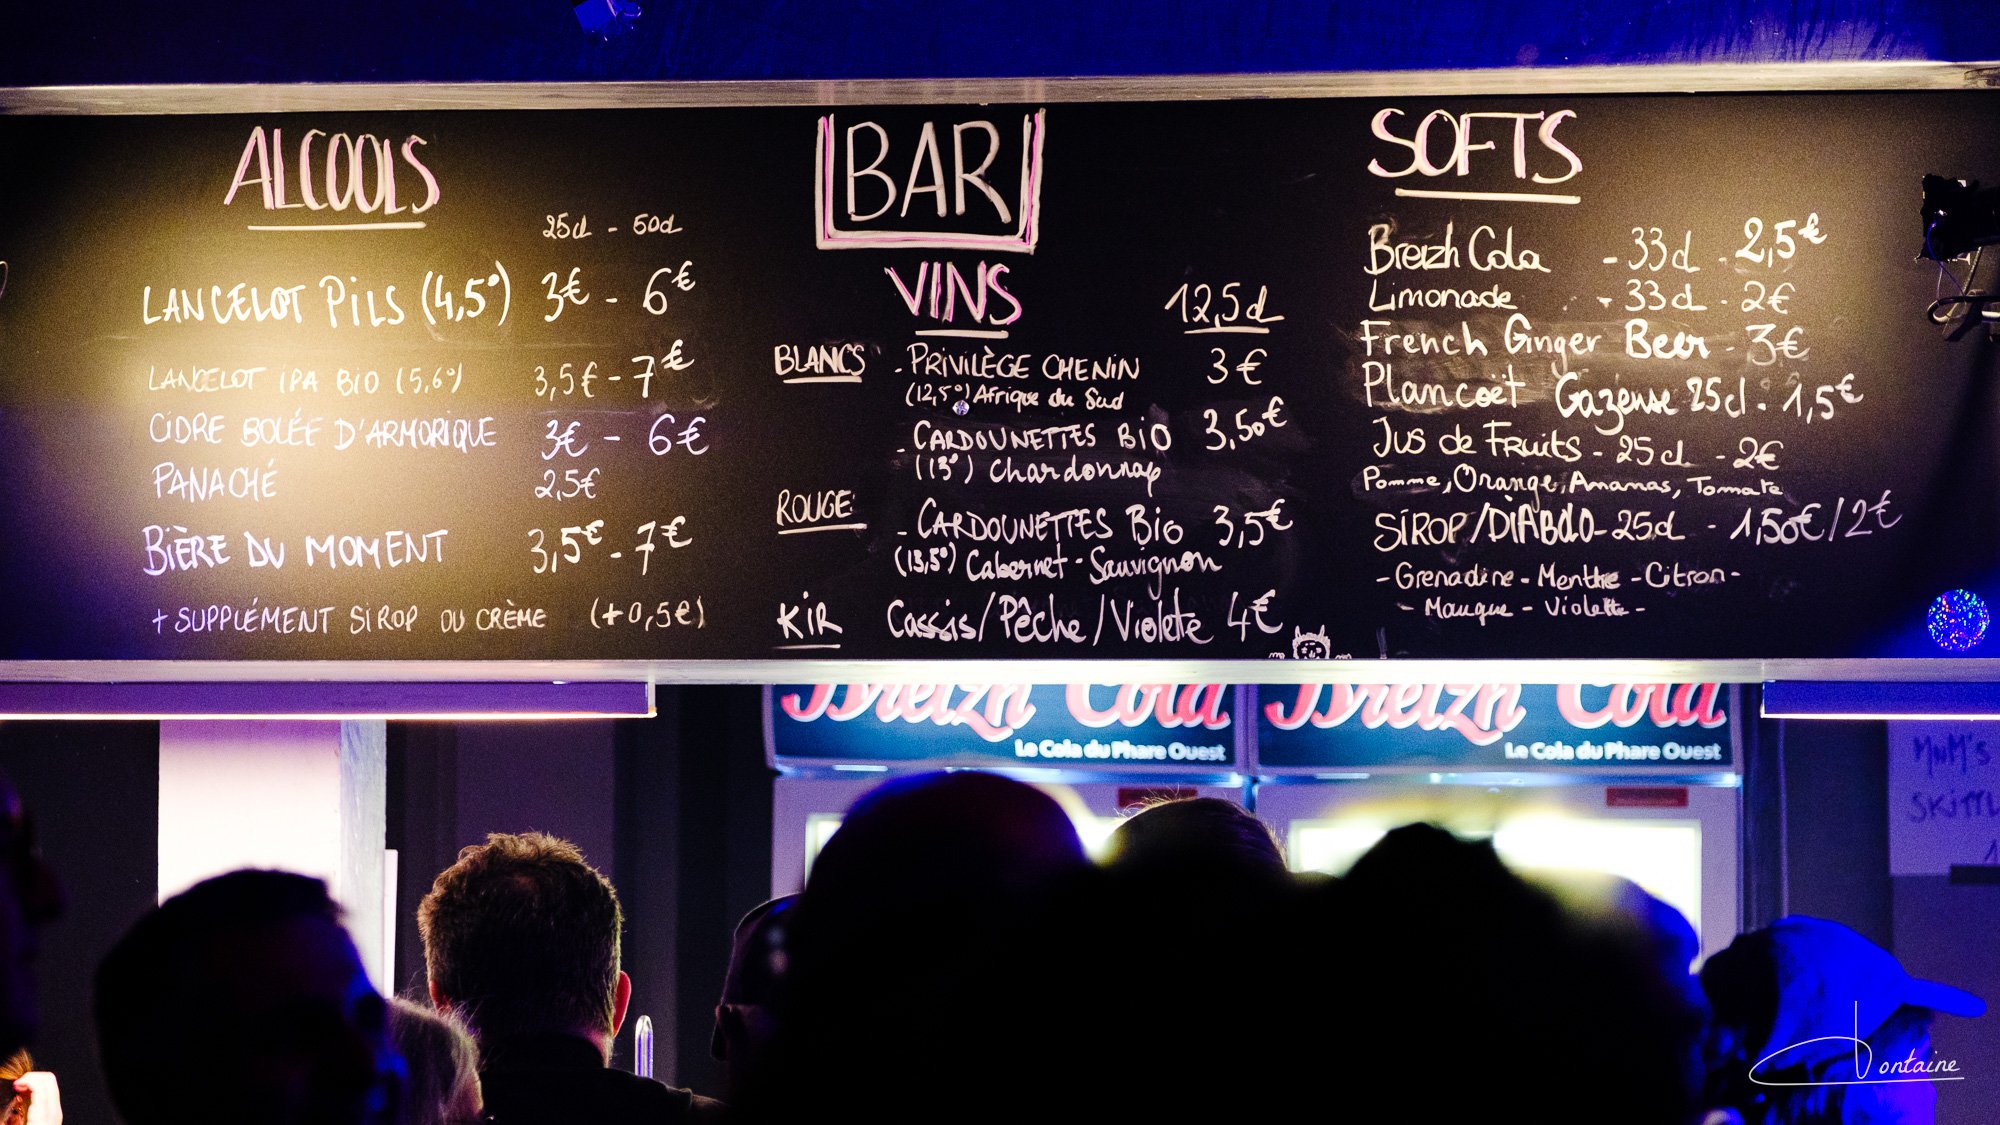 ALCOOLS
25cl - 50cl
LANCELOT PILS (4,5°) 3€ - 6€
LANCELOT IPA BIO (5,6°) 3,5€ - 7€
CIDRE BOLÉE D'ARMORIQUE 3€ - 6€
PANACHÉ 2,5€
BIÈRE DU MOMENT 3,5€ - 7€
+ SUPPLÉMENT SIROP OU CRÈME (+0,5€)
BAR
VINS 12,5cl
BLANCS - PRIVILÈGE CHENIN 3€
(12,5°) Afrique du Sud
- CARDOUNETTES BIO 3,50€
(13°) Chardonnay
ROUGE:
- CARDOUNETTES BiO 3,5€
(13,5°) Cabernet - Sauvignon
KIR Cassis/Pêche/Violette 4€
SOFTS
Breizh Cola - 33cl - 2,5€
Limonade - 33cl - 2€
French Ginger Beer - 3€
Plancoët Gazeuse 25cl - 1,5€
Jus de Fruits - 25cl - 2€
Pomme, Orange, Ananas, Tomate
SIROP/DIABOLO - 25cl - 1,50€/2€
- Grenadine - Menthe - Citron -
- Mangue - Violette -
Breizh Cola
Le Cola du Phare Ouest
Breizh Cola
Le Cola du Phare Ouest
MnM's
Fontaine